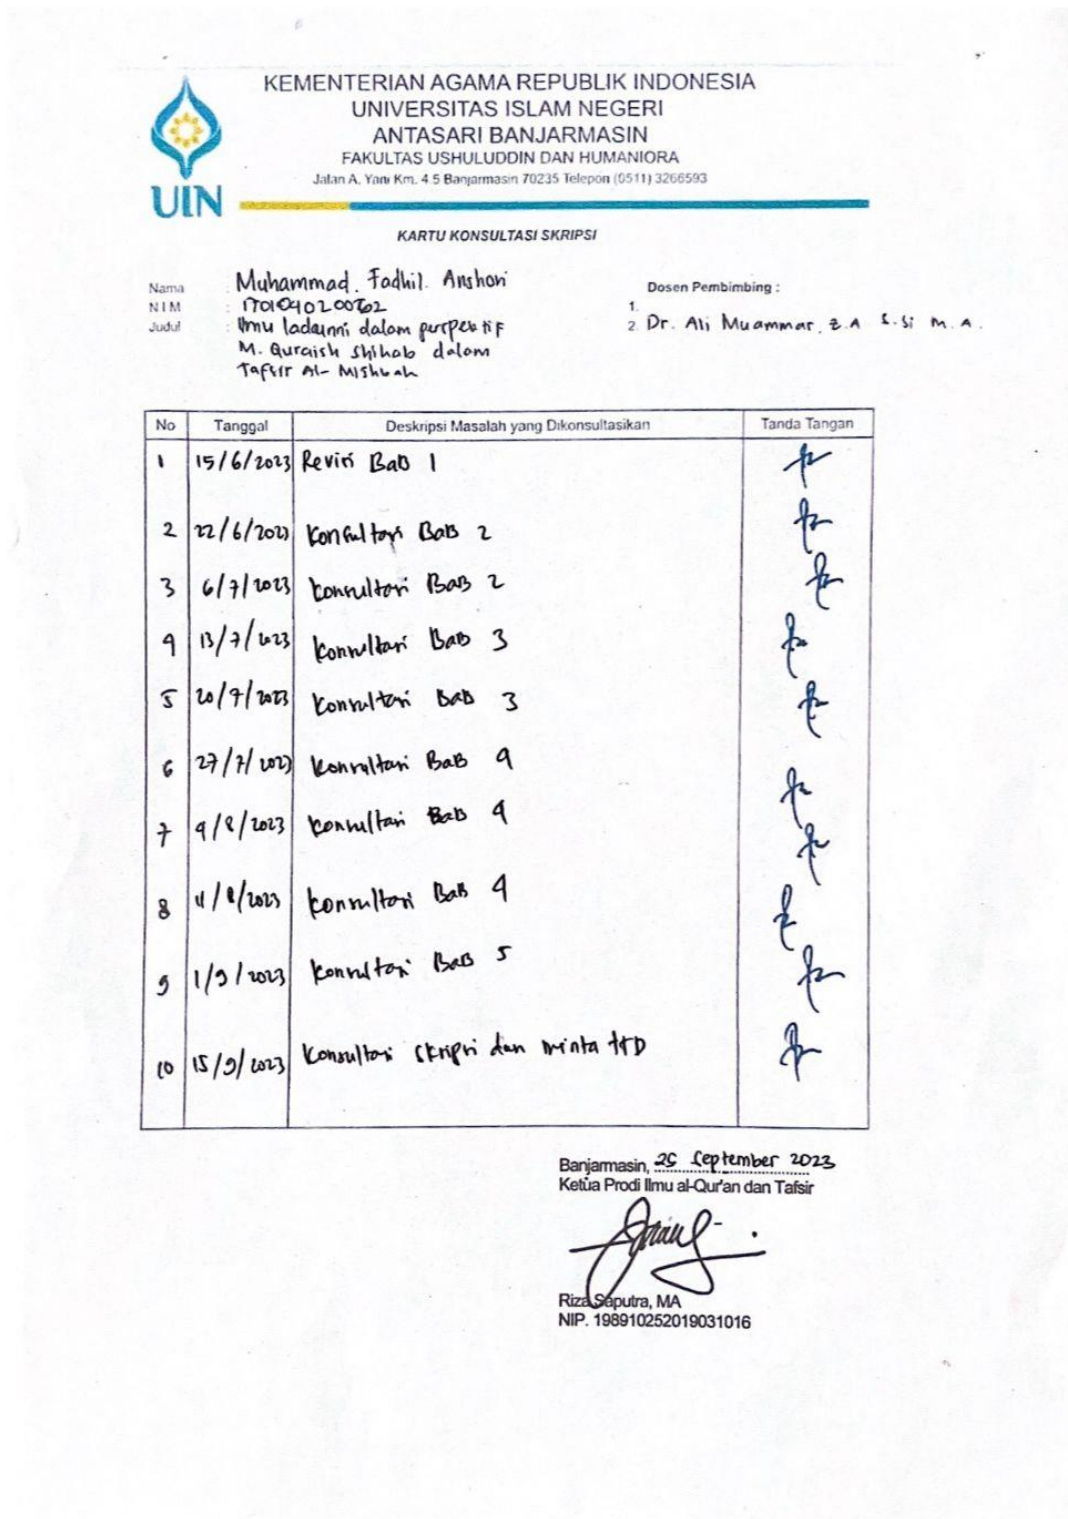 KEMENTERIAN AGAMA REPUBLIK INDONESIA
UNIVERSITAS ISLAM NEGERI
ANTASARI BANJARMASIN
FAKULTAS USHULUDDIN DAN HUMANIORA
Jalan A. Yani Km. 4.5 Banjarmasin 70235 Telepon (0511) 3266593
UIN
KARTU KONSULTASI SKRIPSI
Nama : Muhammad. Fadhil. Anshori
NIM :
Judul : Ilmu ladunni dalam perpektif
M. Quraish Shihab dalam
Tafsir Al-Mishbah
Dosen Pembimbing :
1.
2. Dr. Ali Muammar, Z.A S.Si M.A.
No Tanggal Deskripsi Masalah yang Dikonsultasikan Tanda Tangan
1 15/6/2023 Revisi BaB 1
2 22/6/2023 Konsultasi BaB 2
3 6/7/2023 Konsultasi BaB 2
4 13/7/2023 Konsultasi BaB 3
5 20/7/2023 Konsultasi BaB 3
6 27/7/2023 Konsultasi BaB 4
7 /8/2023 Konsultasi BaB 4
8 /8/2023 Konsultasi BaB 4
9 1/9/2023 Konsultasi BaB 5
10 15/9/2023 Konsultasi Skripsi dan minta TTD
Banjarmasin, 25 September 2023
Ketua Prodi Ilmu al-Qur'an dan Tafsir
Riza Saputra, MA
NIP. 198910252019031016